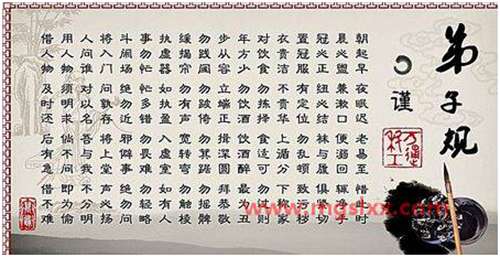 弟子规
谨
朝起早夜眠迟老易至惜此时
晨必盥兼漱口便溺回辄净手
冠必正纽必结袜与履俱紧切
置冠服有定位勿乱顿致污秽
衣贵洁不贵华上循分下称家
对饮食勿拣择食适可勿过则
年方少勿饮酒饮酒醉最为丑
步从容立端正揖深圆拜恭敬
勿践阈勿跛倚勿箕踞勿摇髀
缓揭帘勿有声宽转弯勿触棱
执虚器如执盈入虚室如有人
事勿忙忙多错勿畏难勿轻略
斗闹场绝勿近邪僻事绝勿问
将入门问孰存将上堂声必扬
人问谁对以名吾与我不分明
用人物须明求倘不问即为偷
借人物及时还后有急借不难
www.mgslxx.com